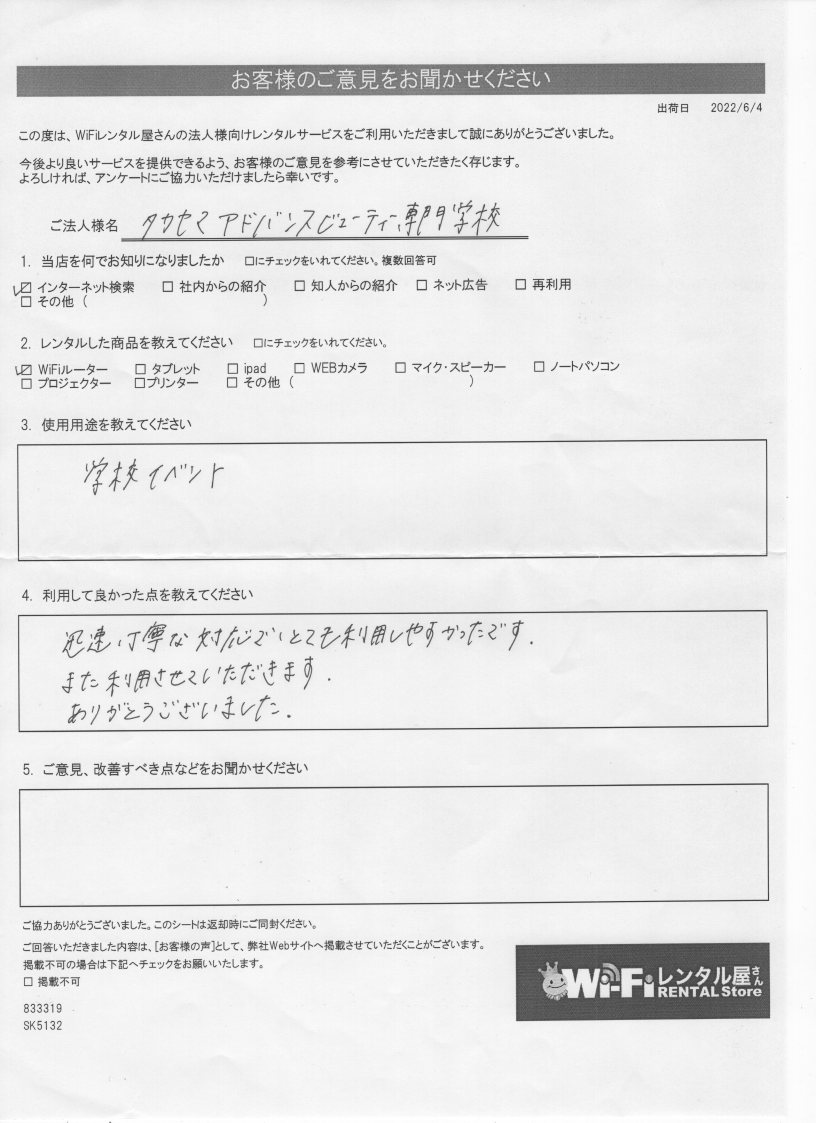 お客様のご意見をお聞かせください
出荷日 2022/6/4
この度は、WiFiレンタル屋さんの法人様向けレンタルサービスをご利用いただきまして誠にありがとうございました。
今後より良いサービスを提供できるよう、お客様のご意見を参考にさせていただきたく存じます。
よろしければ、アンケートにご協力いただけましたら幸いです。
ご法人様名 タカセマアドバンスビューティー専門学校
1. 当店を何でお知りになりましたか □にチェックをいれてください。複数回答可
☑ インターネット検索 □ 社内からの紹介 □ 知人からの紹介 □ ネット広告 □ 再利用
□ その他 ( )
2. レンタルした商品を教えてください □にチェックをいれてください。
☑ WiFiルーター □ タブレット □ ipad □ WEBカメラ □ マイク・スピーカー □ ノートパソコン
□ プロジェクター □プリンター □ その他 ( )
3. 使用用途を教えてください
学校イベント
4. 利用して良かった点を教えてください
迅速、丁寧な対応で、とても利用しやすかったです.
また利用させていただきます.
ありがとうございました.
5. ご意見、改善すべき点などをお聞かせください
ご協力ありがとうございました。このシートは返却時にご同封ください。
ご回答いただきました内容は、[お客様の声]として、弊社Webサイトへ掲載させていただくことがございます。
掲載不可の場合は下記へチェックをお願いいたします。
□ 掲載不可
833319
SK5132
Wi-Fiレンタル屋さん
RENTAL Store